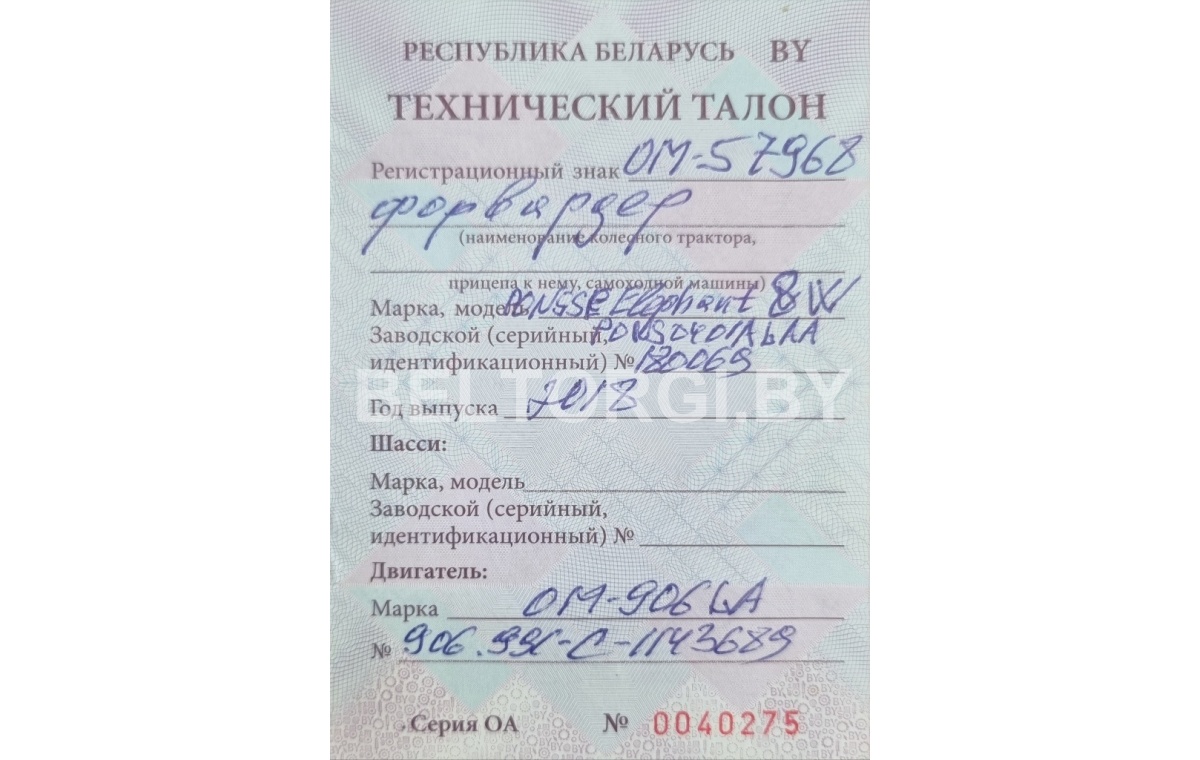 РЕСПУБЛИКА БЕЛАРУСЬ BY
ТЕХНИЧЕСКИЙ ТАЛОН
Регистрационный знак ОМ-5 7968
форвардер
(наименование колесного трактора,
прицепа к нему, самоходной машины)
Марка, модель PONSSE Elephant 8W
Заводской (серийный,
идентификационный) № 180069
BELTORGI.BY
Год выпуска 2018
Шасси:
Марка, модель
Заводской (серийный,
идентификационный) №
Двигатель:
Марка ОМ-906 LA
№ 906.991-C-1143689
Серия ОА № 0040275